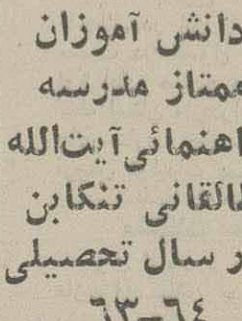 دانش آموزان
ممتاز مدرسه
اهنمائی آیت‌الله
طالقانی تنکابن
ر سال تحصیلی
۶۳-۶۴